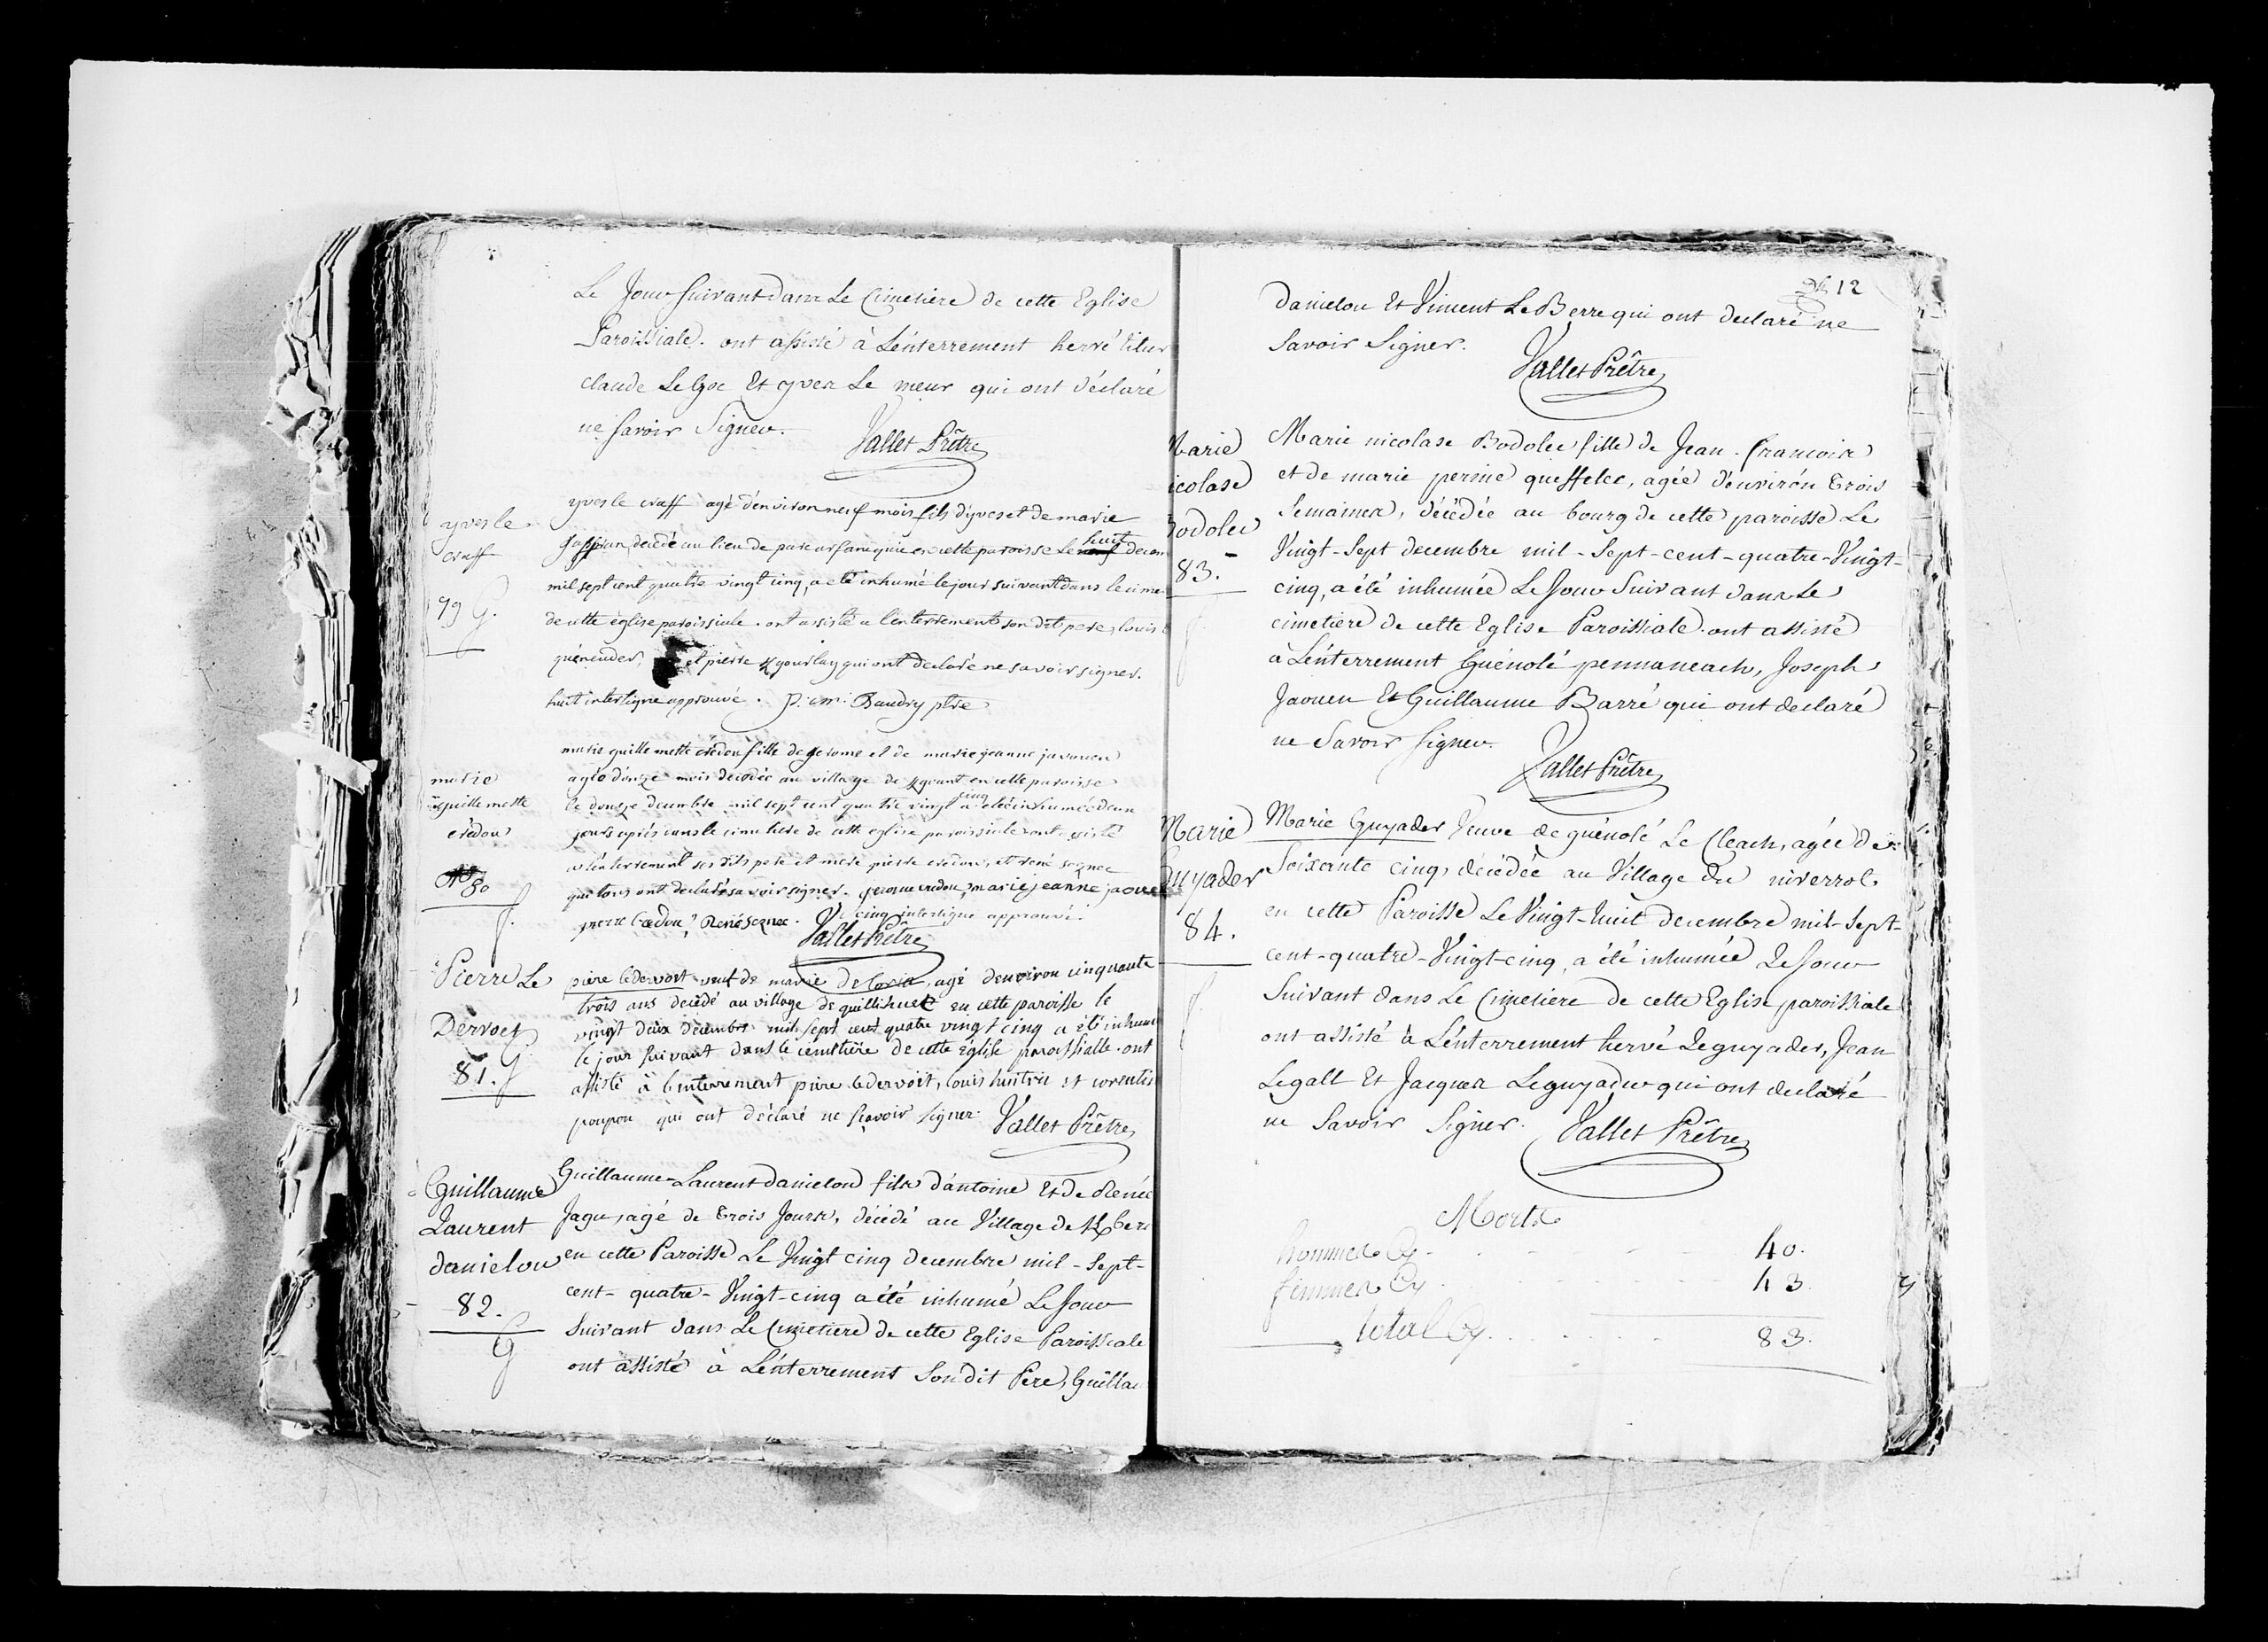 Le Jour suivant dans Le Cimetiere de cette Eglise
Paroissiale. ont assisté à L'enterrement hervé
claude Le Goc Et yves Le meur qui ont déclaré
ne savoir Signer.
Vallet Prêtre
yves le
craff
79
yves le craff agé d'environ neuf mois fils d'yves et de marie
decedé au lieu de en cette paroisse le neuf huit decem
mil sept cent quatre vingt cinq, a eté inhumé le jour suivant dans le cime
de cette église paroissiale. ont assisté a l'enterrement son dit pere, louis
quéneuder, et pierre Kgourlay qui ont declaré ne savoir signer.
huit interligne approuvé. Baudry ptre
marie
guillemette
crédou
80
marie guillemette crédou fille de jerome et de marie jeanne javouen
agée d'onze mois decedée au village de en cette paroisse
le douze decembre mil sept cent quatre vingt cinq a eté inhumée deux
jours après dans le cimetiere de cette eglise paroissiale ont assisté
a l'enterrement ses dits pere et mere pierre credou, et rené seznec
qui tous ont declaré savoir signer. jerome credou, marie jeanne jaoue
pierre Credou, René Seznec. cinq interligne approuvé.
Vallet Prêtre
Pierre Le
Dervoet
81.
piere ledervoet veuf de marie agé denviron cinquante
trois ans decédé au village de en cette paroisse le
vingt deux decembre mil sept cent quatre vingt cinq a été inhum
le jour suivant dans le cémitiere de cette église paroissialle. ont
assisté à l'enterrement piere ledervoit, louis et corentin
poupon qui ont déclaré ne sçavoir signer. Vallet Prêtre
Guillaume
Laurent
danielou
82.
Guillaume-Laurent danielou fils d'antoine Et de Renée
Jagu, agé de trois Jours, décédé au Village de
en cette Paroisse Le Vingt cinq decembre mil-Sept-
cent-quatre-Vingt-cinq a été inhumé Le Jour
Suivant dans Le Cimetiere de cette Eglise Paroissiale
ont assisté à L'enterrement Son dit Pere, Guillau
12
danielou Et Vincent Le Berre qui ont declaré ne
Savoir Signer.
Vallet Prêtre
Marie
icolase
Bodolec
83.
Marie nicolase Bodolec fille de Jean-francois
et de marie perrine queffelec, agée d'environ trois
Semaines, décédée au bourg de cette paroisse Le
Vingt-Sept decembre mil-Sept-cent-quatre-Vingt-
cinq, a été inhumée Le Jour Suivant dans Le
cimetiere de cette Eglise Paroissiale. ont assisté
à L'enterrement Guénolé pennaneach, Joseph
Jaouen Et Guillaume Barré qui ont declaré
ne Savoir Signer.
Vallet Prêtre
Marie
Guyader
84.
Marie Guyader Veuve de guénolé Le Cleach, agée de
Soixante cinq, décédée au Village du niverrot
en cette Paroisse Le Vingt-huit decembre mil-Sept-
cent-quatre-Vingt-cinq, a été inhumée Le Jour
Suivant dans Le Cimetiere de cette Eglise paroissiale
ont assisté à L'enterrement hervé Le guyader, Jean
Legall Et Jacques Leguyader qui ont declaré
ne Savoir Signer. Vallet Prêtre
Morts
hommes Cy 40.
femmes Cy 43
total Cy 83.